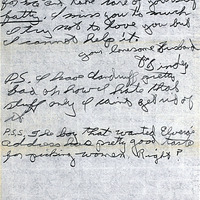 take care of your
self. I miss you so much
I try not to love you but
I cannot help it.
your lonesome Husband
P.S. I have dandruff pretty
bad oh how I hate that
stuff only I can't get rid of
it
P.S.S. The boy that wanted Elvera's
address has pretty good taste
for picking women. Right?